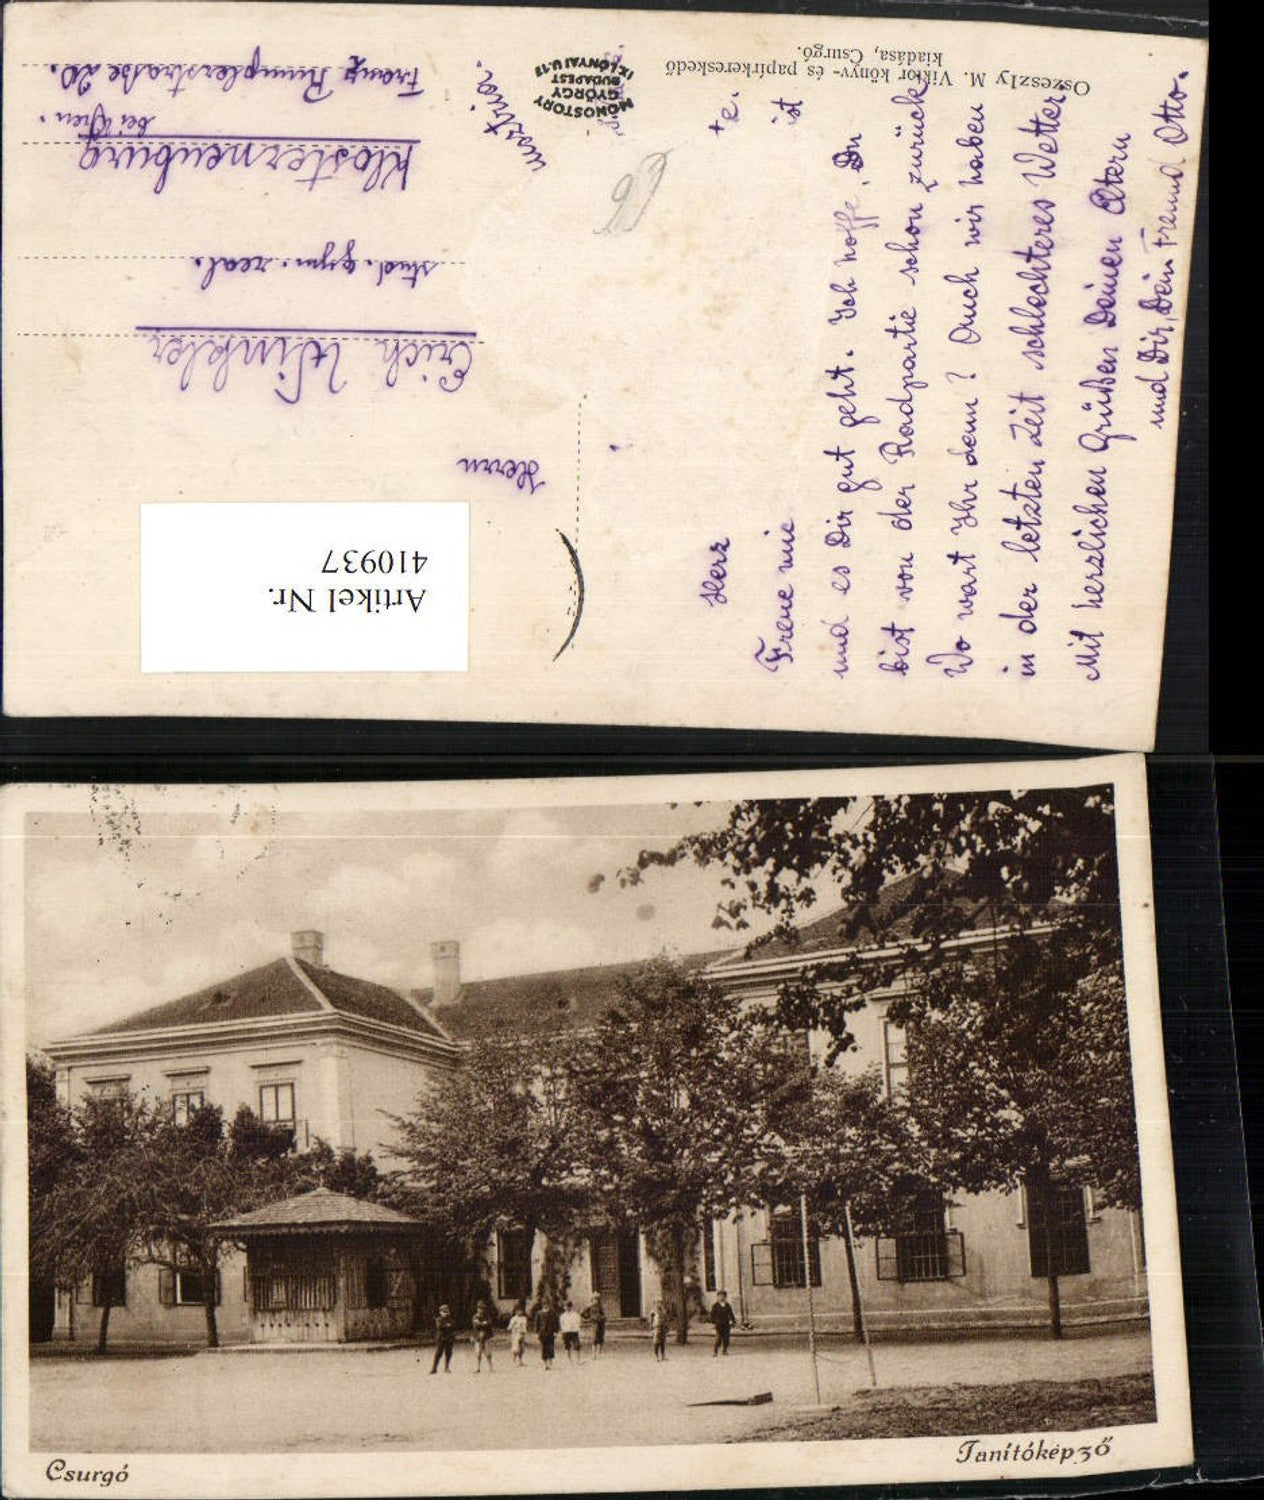 Oszeszly M. Viktor könyv- és papirkereskedő
kiadása, Csurgó.
MONOSTORY
GYÖRGY
BUDAPEST
IX. LÓNYAI U. 13
Herz
te.
Freue mich
ist
und es Dir gut geht. Ich hoffe, Du
bist von der Radpartie schon zurück.
Wo wart Ihr denn? Auch wir haben
in der letzten Zeit schlechteres Wetter.
Mit herzlichen Grüßen Deinen Eltern
und Dir, Dein Freund Otto.
Herrn
Erich Winkler
stud. gym. real.
Klosterneuburg
bei Wien.
Franz Rumplerstrasse 20.
Austria.
Artikel Nr.
410937
Csurgó
Tanítóképző